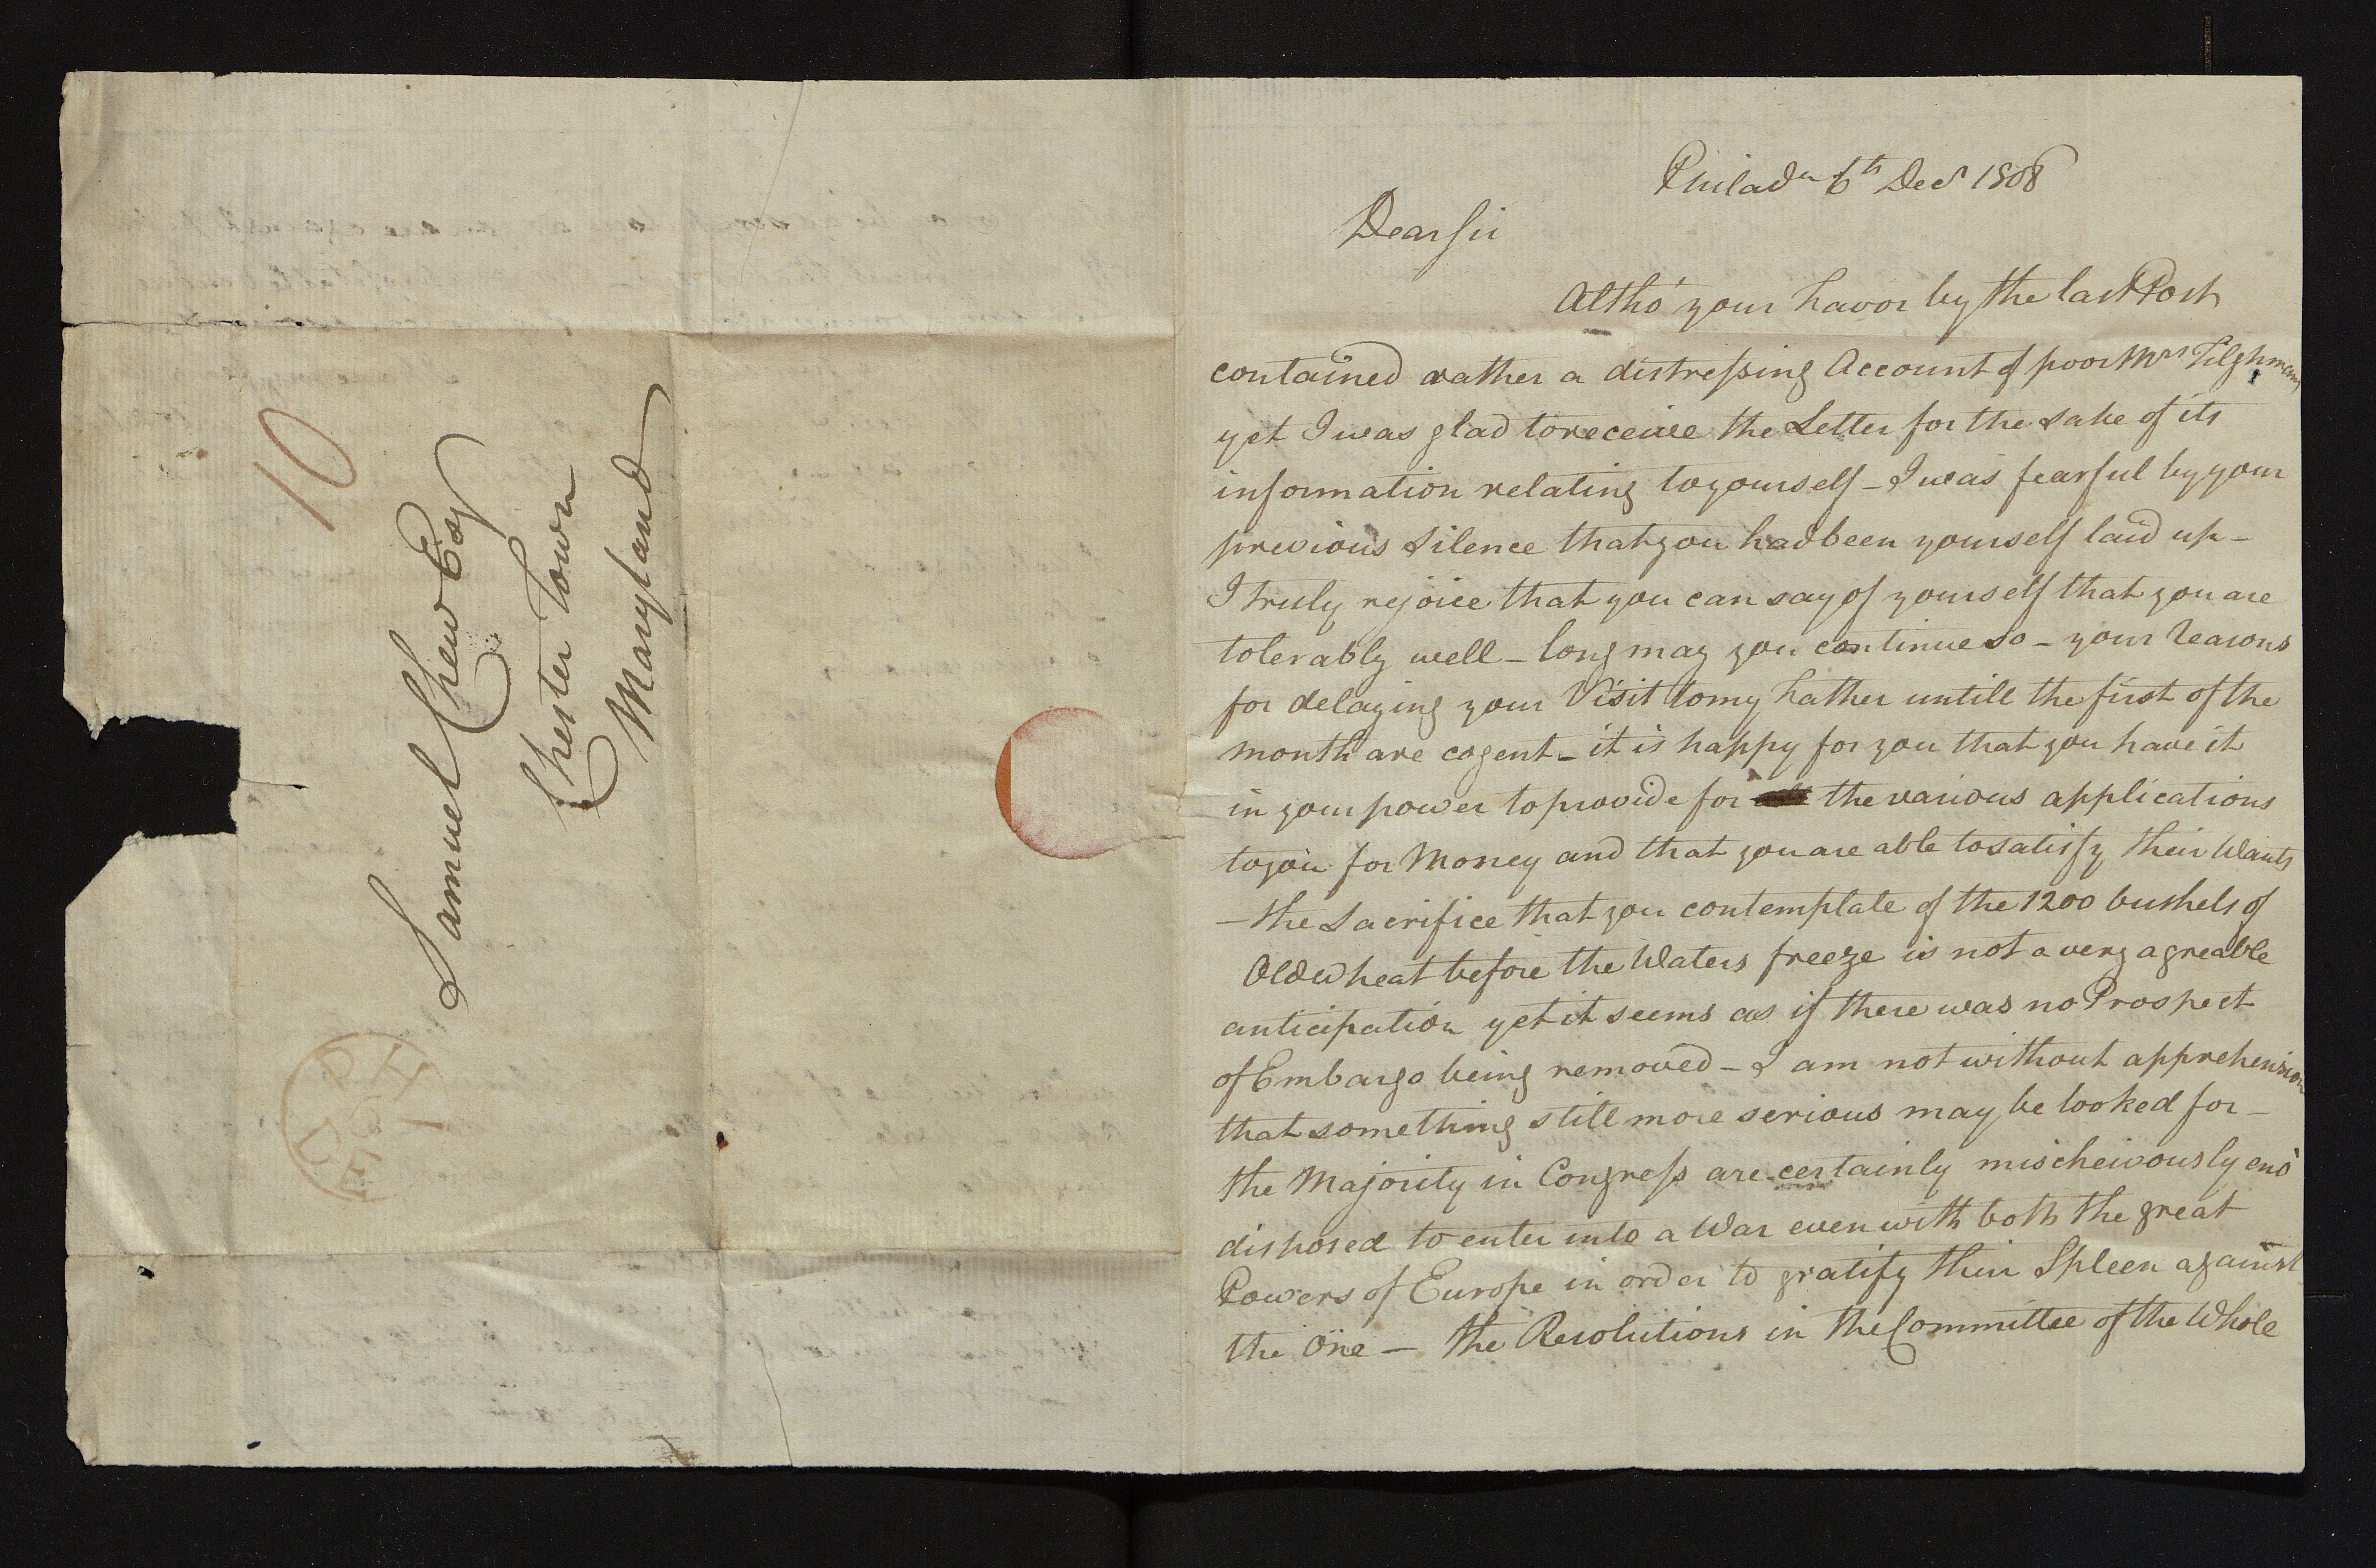 10
Samuel Chew Esqr
Chester Town
Maryland
PHI
6
DE
Philada 6th Decr 1808
Dear Sir
Altho' your favor by the last Post
contained rather a distressing Account of poor Mrs Tilghman
yet I was glad to receive the Letter for the sake of its
information relating to yourself – I was fearful by your
previous silence that you had been yourself laid up –
I truly rejoice that you can say of yourself that you are
tolerably well – long may you continue so – your reasons
for delaying your Visit to my Father untill the first of the
month are cogent – it is happy for you that you have it
in your power to provide for the various applications
to you for Money and that you are able to satisfy their Wants
– the sacrifice that you contemplate of the 1200 bushels of
Old wheat before the Waters freeze is not a very agreable
anticipation yet it seems as if there was no Prospect
of Embargo being removed – I am not without apprehension
that something still more serious may be looked for –
the Majority in Congress are certainly mischeivously eno'
disposed to enter into a War even with both the great
Powers of Europe in order to gratify their Spleen against
the One — the Resolutions in the Committee of the Whole